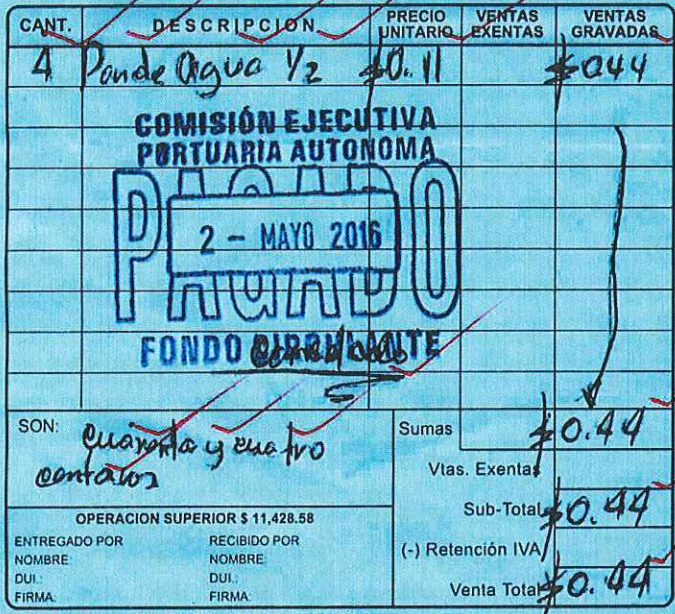 CANT. DESCRIPCION PRECIO UNITARIO VENTAS EXENTAS VENTAS GRAVADAS
4 Pande Agua 1/2 $0.11 $044
COMISIÓN EJECUTIVA
PORTUARIA AUTONOMA
PAGADO
2 - MAYO 2016
FONDO CIRCULANTE
SON: cuarenta y cuatro
centavos
Sumas $0.44
Vtas. Exentas
Sub-Total $0.44
(-) Retención IVA
Venta Total $0.44
OPERACION SUPERIOR $ 11,428.58
ENTREGADO POR RECIBIDO POR
NOMBRE: NOMBRE:
DUI.: DUI.:
FIRMA: FIRMA: